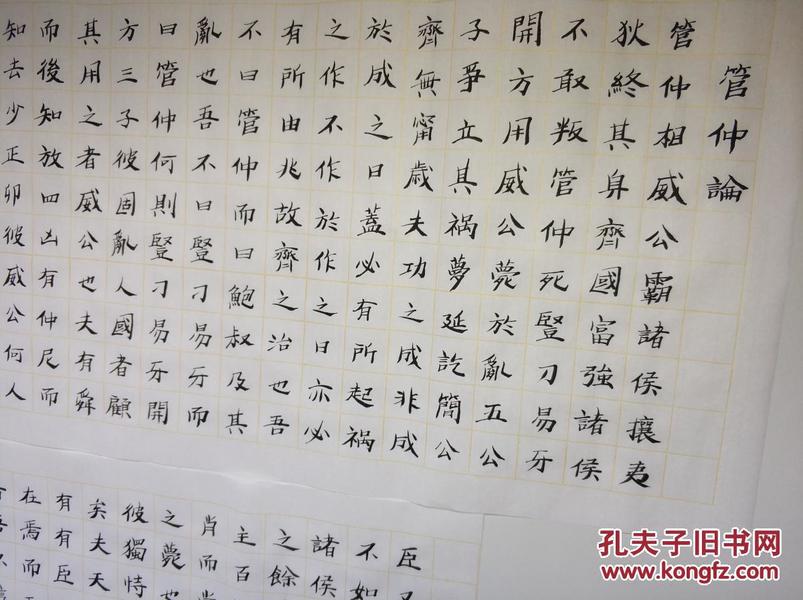 管仲論
管仲相威公霸諸侯攘夷
狄終其身齊國富強諸侯
不敢叛管仲死豎刁易牙
開方用威公薨於亂五公
子爭立其祸夢延訖簡公
齊無甯歲夫功之成非成
於成之日蓋必有所起祸
之作不作於作之日亦必
有所由兆故齊之治也吾
不曰管仲而曰鮑叔及其
亂也吾不曰豎刁易牙而
曰管仲何則豎刁易牙開
方三子彼固亂人國者顧
其用之者威公也夫有舜
而後知放四凶有仲尼而
知去少正卯彼威公何人
臣
不如
諸侯
之餘
主百
肖而
之薨也
彼獨恃
矣夫天
有有臣
在焉而
孔夫子旧书网
www.kongfz.com